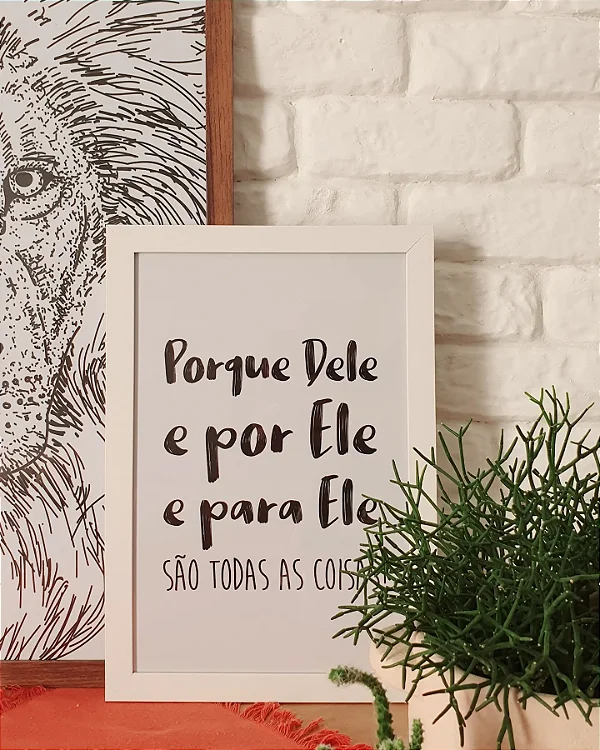 Porque Dele
e por Ele
e para Ele
SÃO TODAS AS